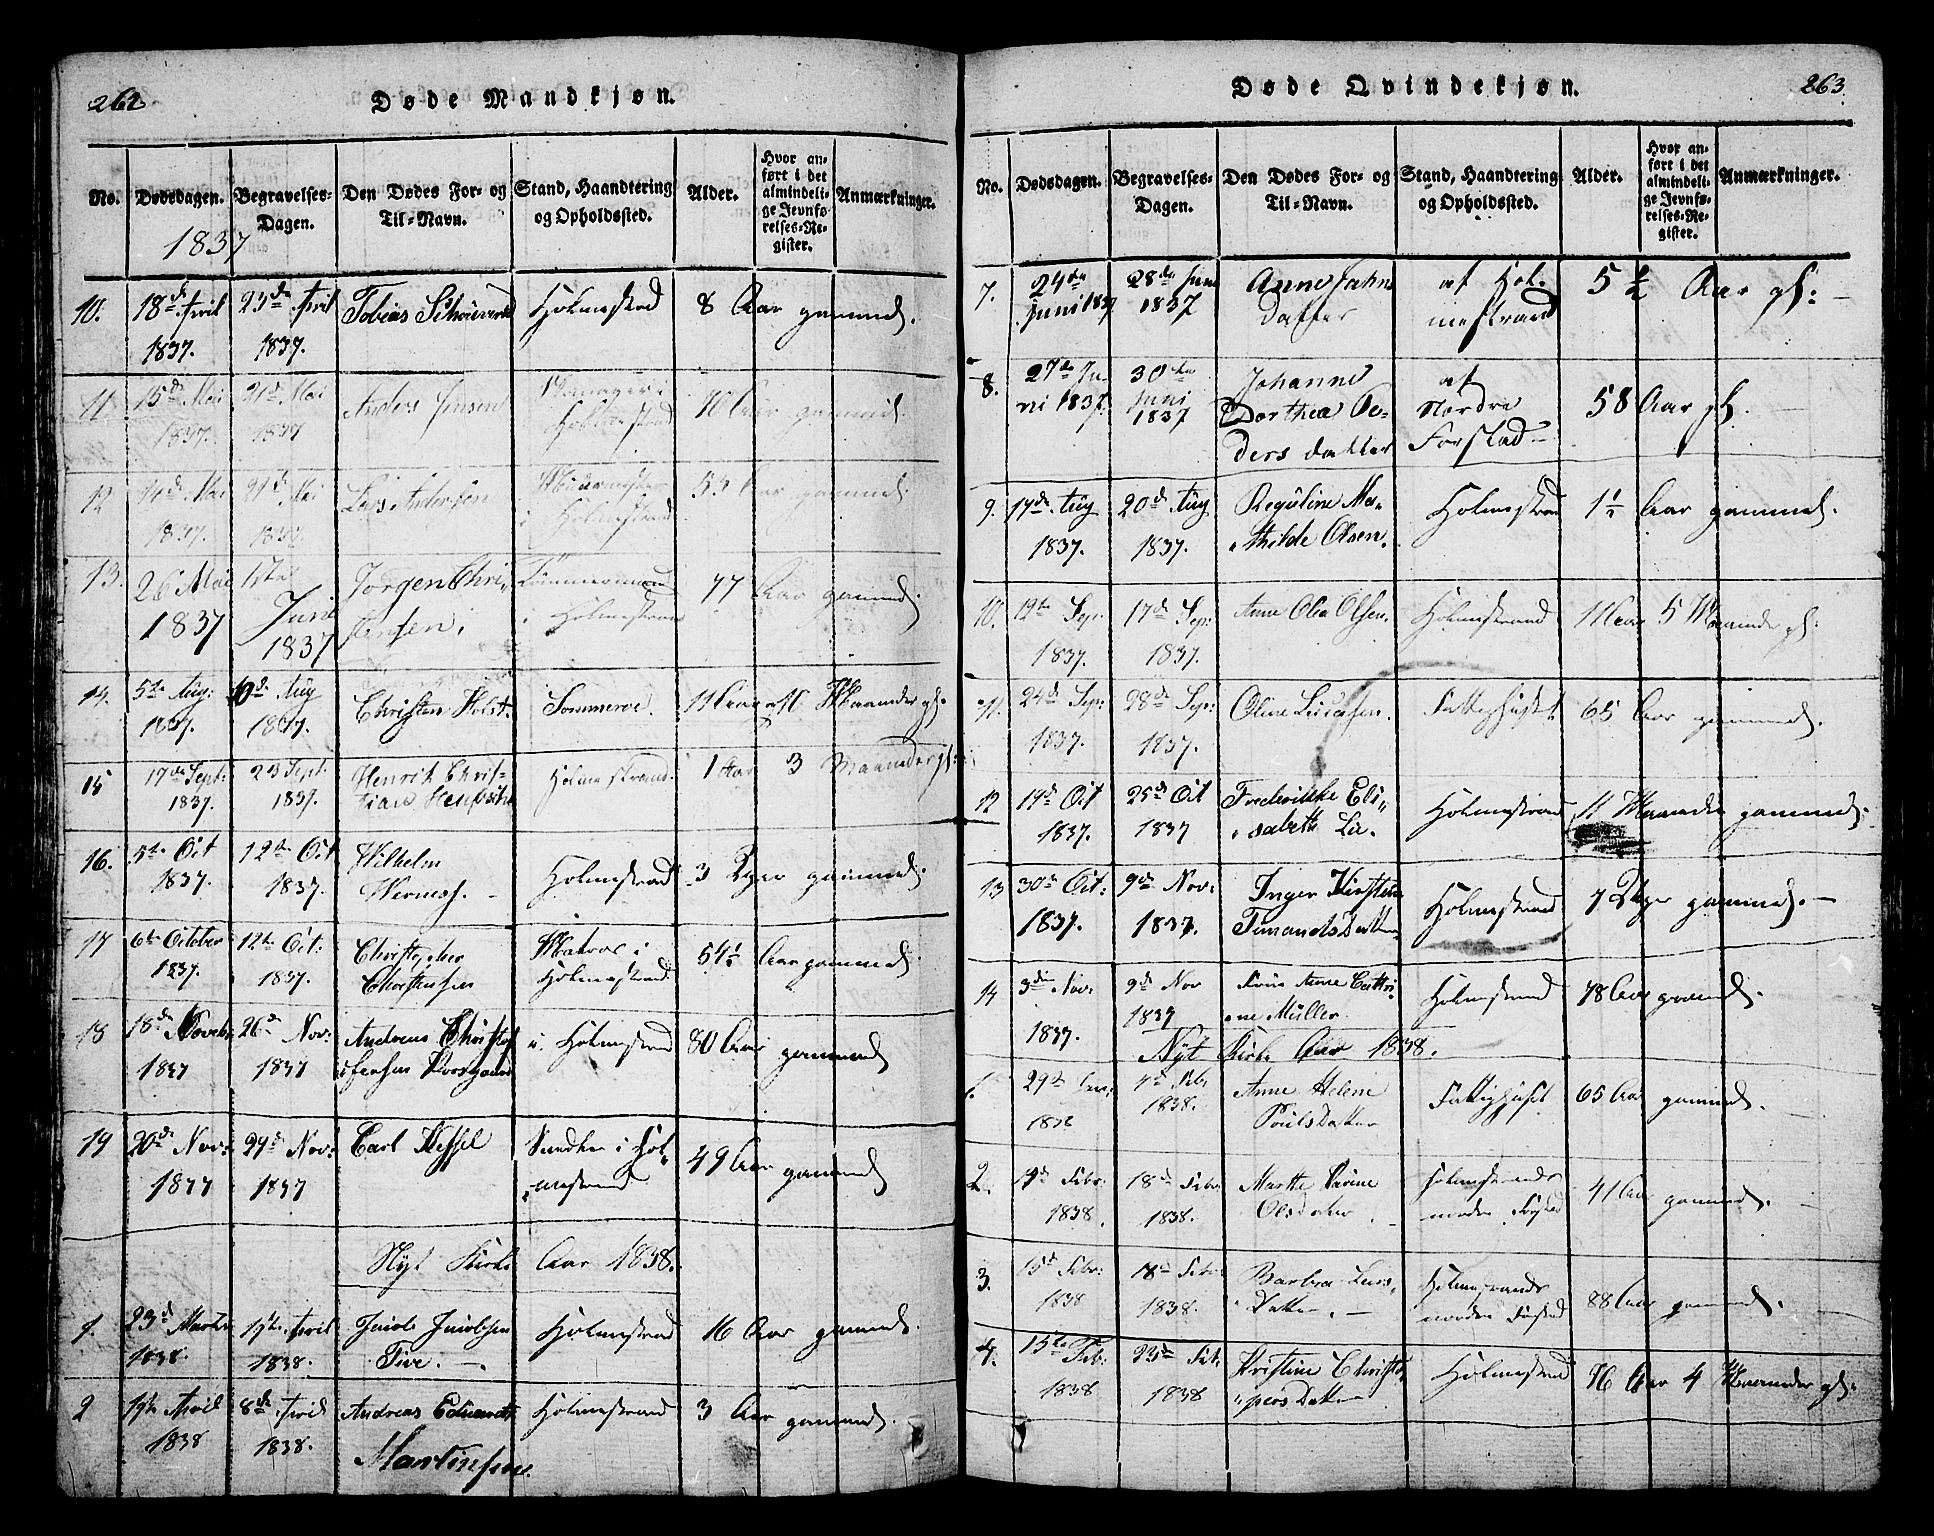 262
Døde Mandkjøn.
No. Dødsdagen. Begravelses-Dagen. Den Dødes For- og Til-Navn. Stand, Haandtering og Opholdssted. Alder. Hvor anført i det almindelige Jevnførelses-Register. Anmærkninger.
1837
10. 18de April 1837. 23de April 1837. Tobias Holmestrand 8 Aar gammel.
11. 15de Mai 1837. 21de Mai 1837 Anders Jensen Aar gammel.
12 Mai 1837. 21de Mai Lars Andersen i Holmestrand Aar gammel.
13. 26 Mai 1837 1ste Juni 1837 Jørgen Chri-stensen. Tømmermand i Holmestrand 77 Aar gammel.
14. 5te Aug: 1837. 10de Aug 1837. Christen Holst. Sommeroe. 1 Aar og 10 Maaneder gl.
15 17de Sept: 1837. 23 Sept: 1837. Henrik Chris-tian Holmestrand. 1 Aar 3 Maaneder gl:
16. 5te Oct 1837. 12te Oct 1837. Wilhelm Holmestrand 3 Uger gammel.
17 6te October 1837. 12te Oct: 1837. Christopher Matros i Holmestrand 54½ Aar gammel.
18 18de Novebr 1837 26de Nov: 1837 Andreas Christof-fersen i Holmestrand 80 Aar gammel
19 20de Nov: 1837 27de Nov: 1837 Carl Hessel i Hol-mestrand 49 Aar gammel
Nyt Kirke Aar 1838.
1. 23de Marts 1838. 1ste April 1838. Jacob Jacobsen Holmestrand 16 Aar gammel.
2 1ste April 1838 8de April 1838. Andreas Eduard Martinsen. Holmestrand 3 Aar gammel.
263
Døde Qvindekjøn.
No. Dødsdagen. Begravelses-Dagen. Den Dødes For- og Til-Navn. Stand, Haandtering og Opholdssted. Alder. Hvor anført i det almindelige Jevnførelses-Register. Anmærkninger.
7. 24de Juni 1837 28de Juni 1837 Anne Jahns Datter af Hol-mestrand 5½ Aar gl: -
8. 27de Ju-ni 1837. 30te Juni 1837 Johanne Dorthea Pe-ders datter af Nordre Forstad 58 Aar gl. -
9. 17de Aug 1837. 20de Aug 1837. Reguline Ma-thilde Olsen. Holmestrand 1½ Aar gammel.
10. 12te Sep: 1837. 17de Sep: 1837. Anne Olea Olsen. Holmestrand 1 Aar 5 Maaneder gl:
11. 24de Sep: 1837. 28de Sep: 1837. Oline Fattighuset 65 Aar gammel.
12 19de Oct 1837. 25de Oct 1837 Frederikke Eli-sabeth Lie. Holmestrand 11 Maaneder gammel.
13 30te Oct: 1837. 9de Nov: 1837. Inger Kirstine Holmestrand 7 Uger gammel. -
14 3die Nov: 1837. 9de Nov 1837 Anne Cathri-ne Müller. Holmestrand 78 Aar gammel.
Nyt Kirke Aar 1838.
1. 29de 1838 4de Febr 1838. Anne Helene Pouls Datter Fattighuset 65 Aar gammel.
2. 14de Febr: 1838. 18de Febr 1838. Marthe Karine Olsdatter Holmestrands nordre Forstad 41 Aar gammel.
3. 15de Febr: 1838 18de Febr: 1838. Barbra Lars-Datter. Holmestrands nordre Forstad 88 Aar gammel.
4. 15te Feb: 1838 25de Feb. 1838 Kristine Christo-phers Datter Holmestrand 76 Aar 4 Maaneder gl: